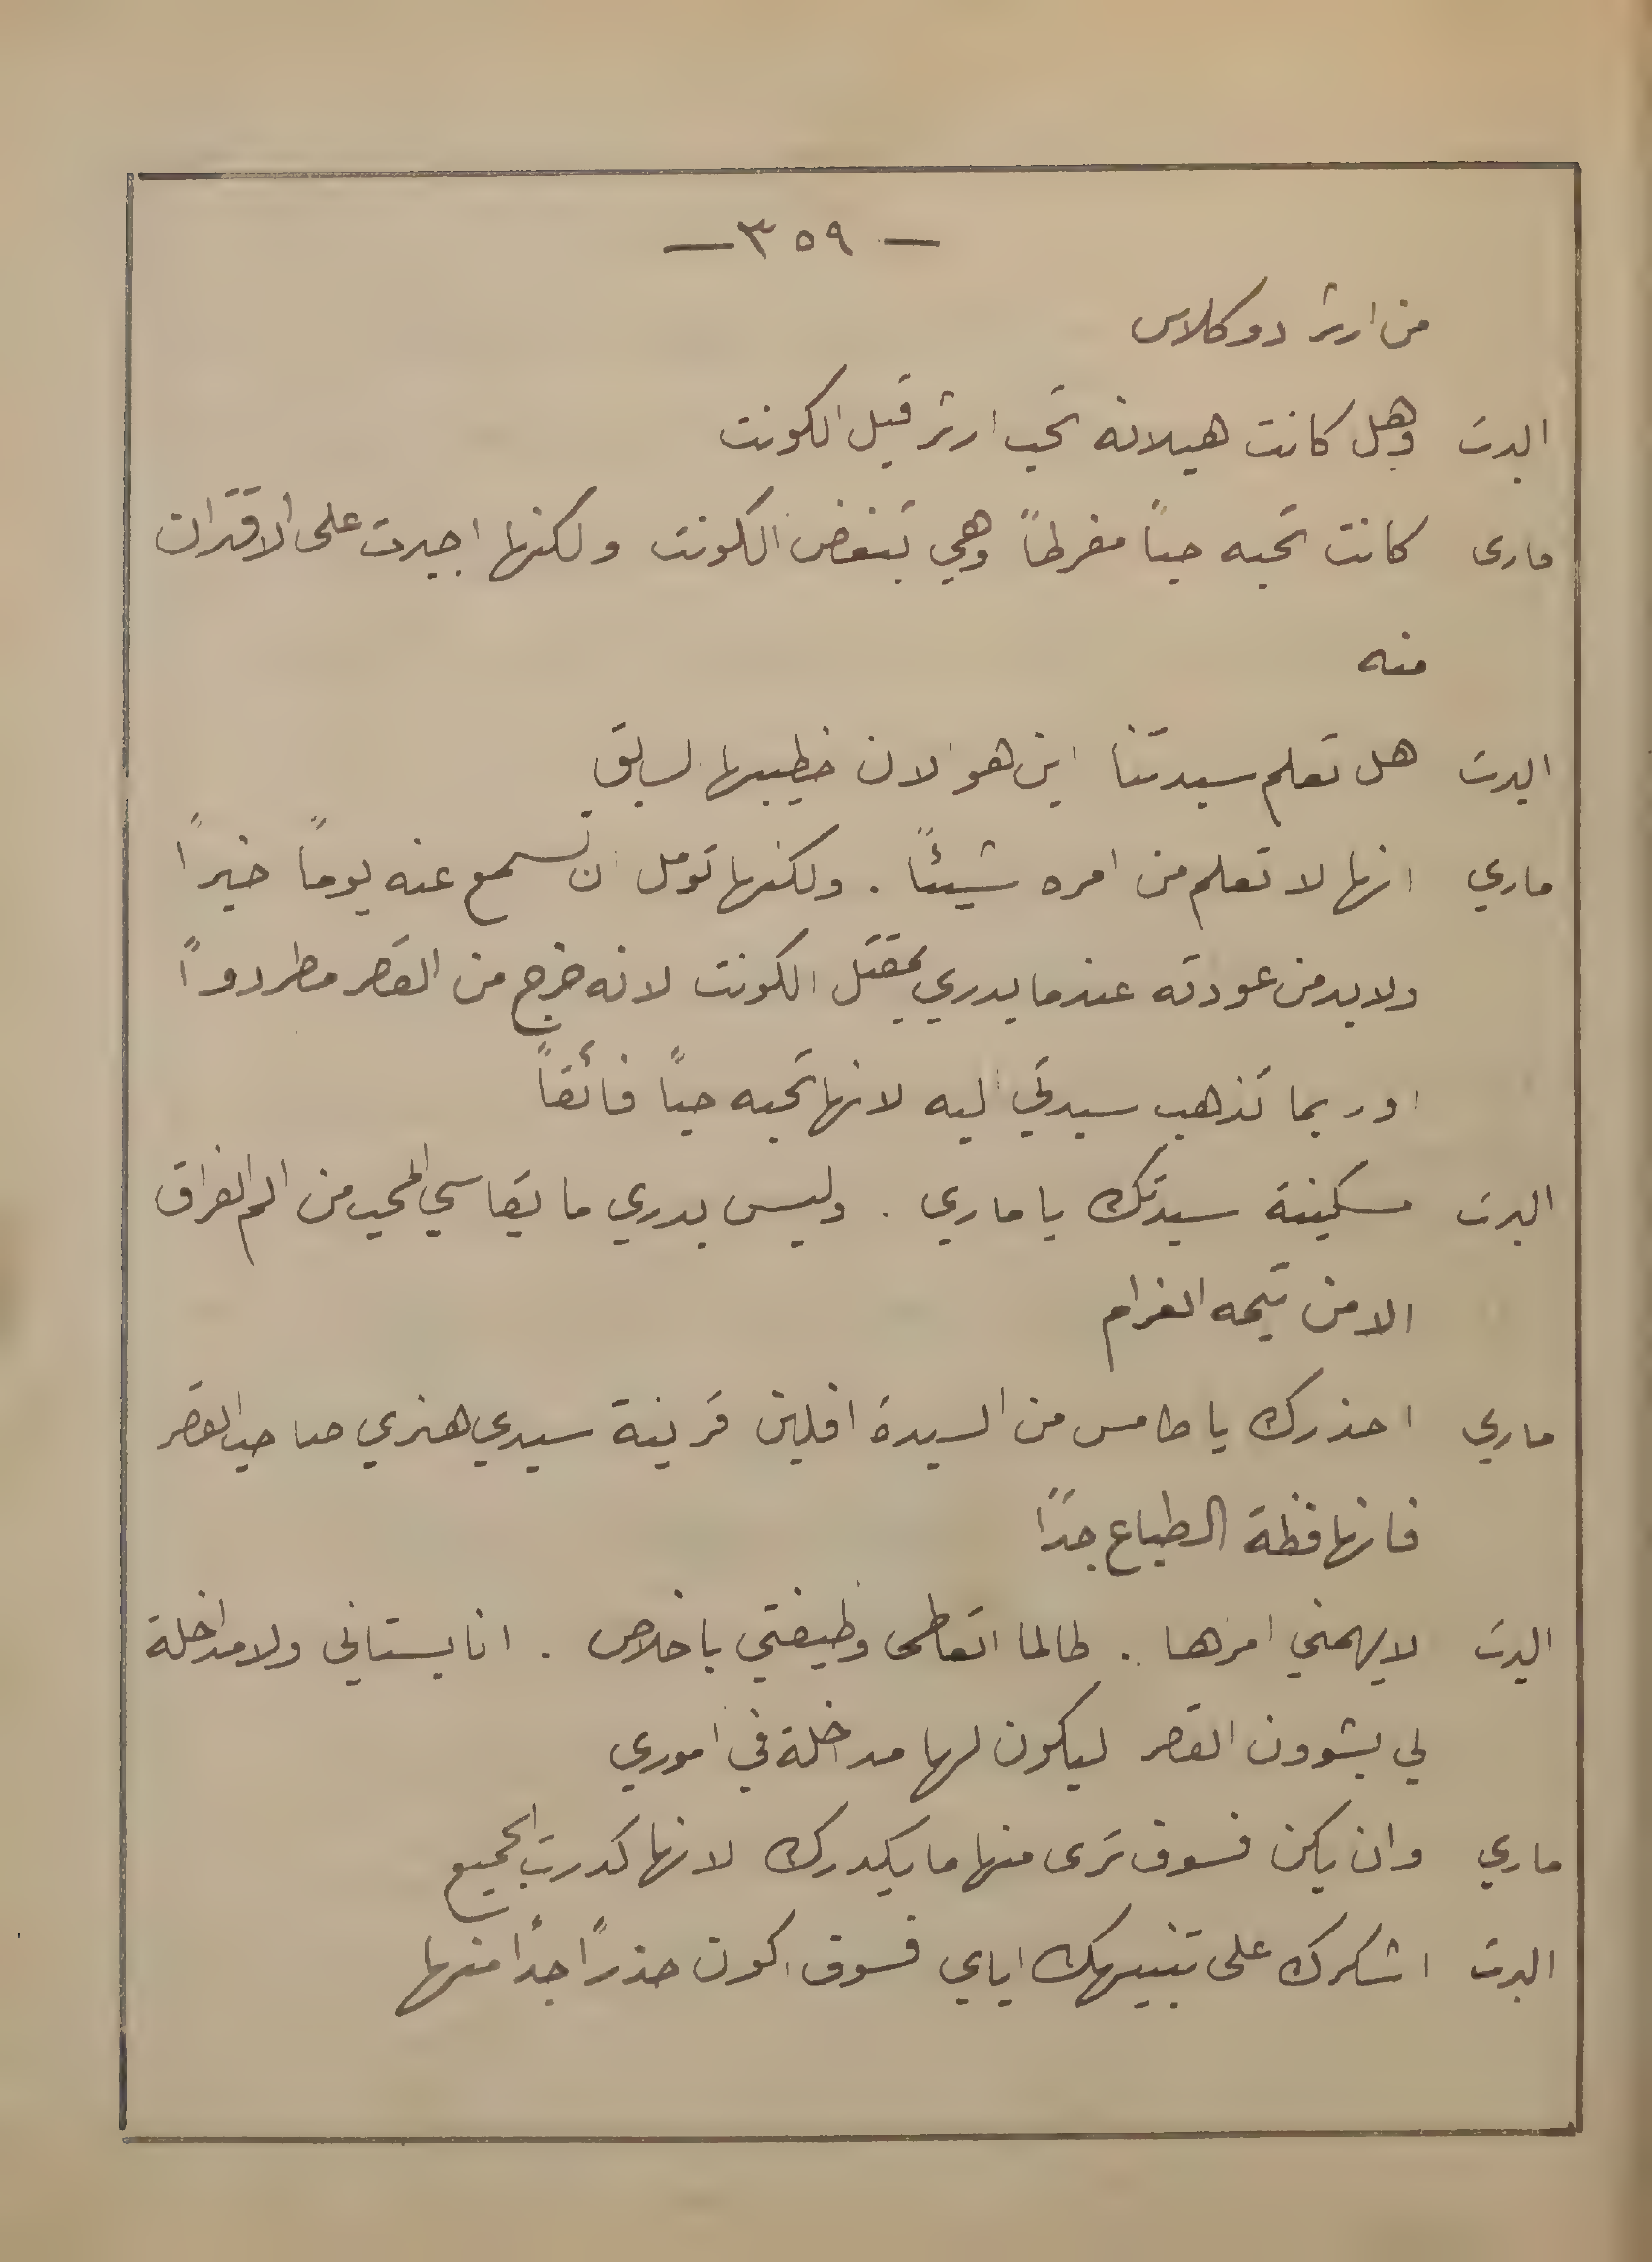 — ٣٥٩ —
من ارثر دوكلاس
البرت وهل كانت هيلانه تحب ارثر قبل الكونت
مارى كانت تحبه حباً مفرطاً وهي تبغض الكونت ولكنها اجبرت على الاقتران
منه
البرت هل تعلم سيدتنا اين هو الان خطيبها السابق
ماري انها لا تعلم من امره شيئاً . ولكنها تومل ان تسمع عنه يوماً خبراً
ولابد من عودته عندما يدري بمقتل الكونت لانه خرج من القصر مطردواً
اوربما تذهب سيدتي اليه لانها تحبه حباً فائقاً
البرت مسكينة سيدتك يا ماري . وليس يدري ما يقاسي المحب من الم الفراق
الا من تيمه الغرام
ماري احذرك يا طامس من السيدة افلين قرينة سيدي هنري صاحب القصر
فانها فظة الطباع جدًا
البرت لا يهمني امرها .. طالما اتعاطى وظيفتي باخلاص . انا بستاني ولا مداخلة
لي بشوون القصر ليكون لها مداخلة في اموري
ماري وان يكن فسوف ترى منها ما يكدرك لانها كدرت الجميع
البرت اشكرك على تنبيهك اياي فسوف اكون حذراً جداً منها